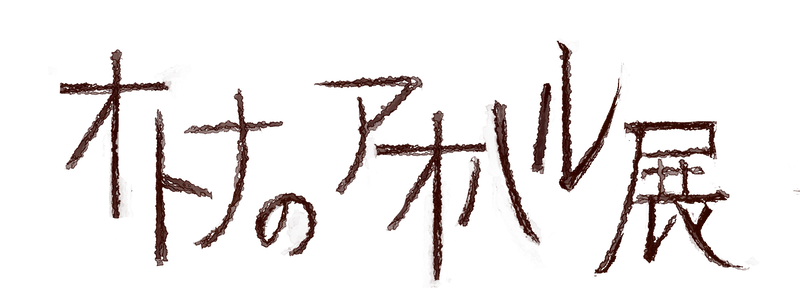 オトナのアオハル展